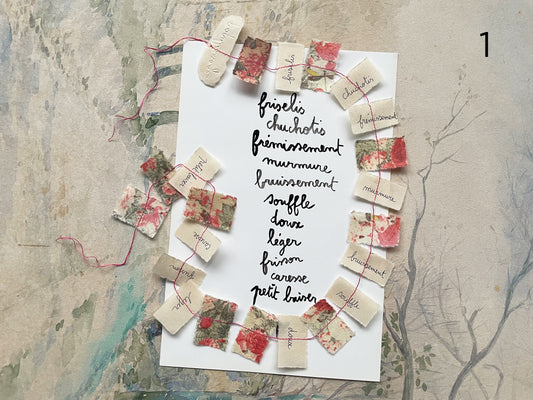 1
friselis
chuchotis
frémissement
murmure
bruissement
souffle
doux
léger
frisson
caresse
petit baiser
friselis
chuchotis
frémissement
murmure
bruissement
souffle
doux
léger
frisson
caresse
petit baiser